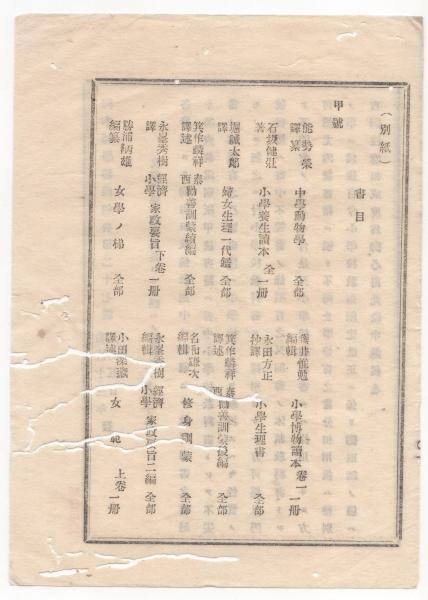 (別紙)
書目
甲號
能勢榮 譯纂 中學動物學 全部
編輯 小學博物讀本 卷一 一冊
石坂健壯 著 小學養生讀本 全一冊
永田方正 抄譯 小學生理書 全部
堀誠太郎 譯 婦女生理一代鑑 全部
箕作麟祥 譯述 泰西勸善訓蒙續編 全部
箕作麟祥 譯述 泰西勸善訓蒙後編 全部
名和謙次 編輯 修身訓蒙 全部
永峯秀樹 譯 經濟小學 家政要旨 下卷 一冊
永峯秀樹 編輯 經濟小學 家政要旨二編 全部
勝浦鞆雄 編纂 女學ノ梯 全部
小田深藏 譯述 女範 上卷 一冊